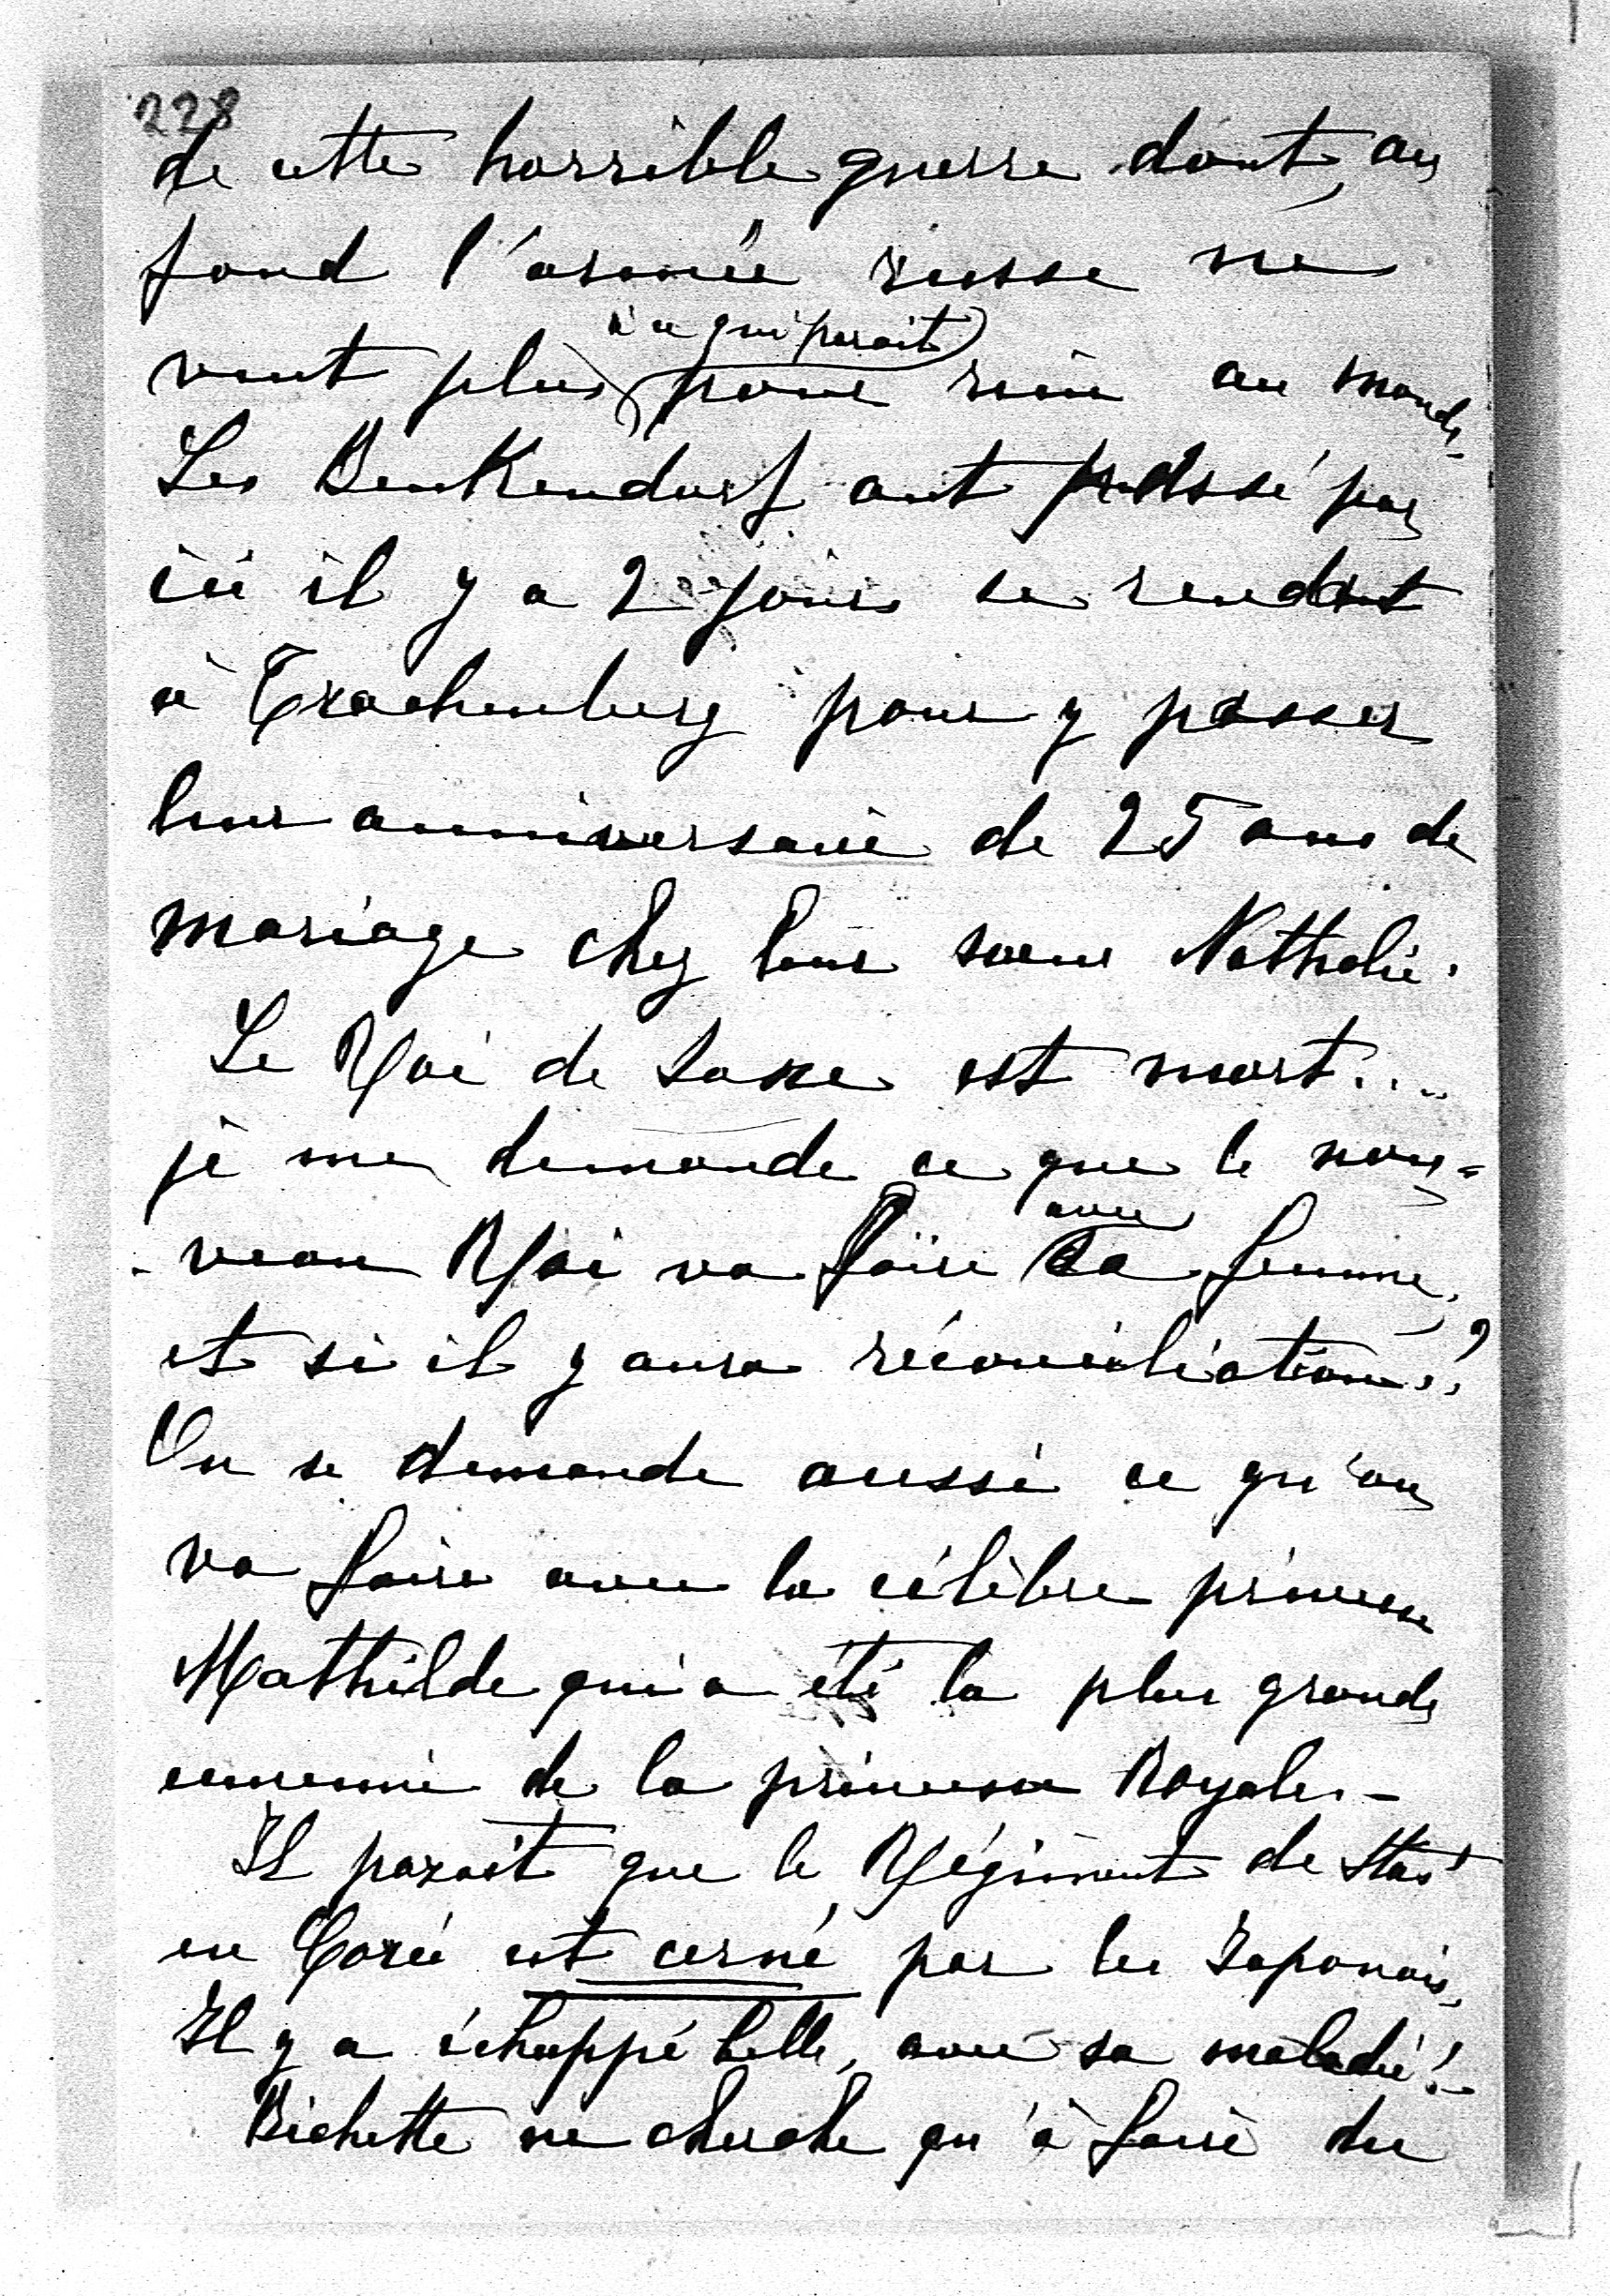 228
de cette horrible guerre dont, au
fond l'armée russe ne
à ce qui parait
veut plus pour rien au monde.
Les Benkendorf ont passé par
ici il y a 2 jours se rendant
à Trachenberg pour y passer
leur anniversaire de 25 ans de
mariage chez leur soeur Nathalie.
Le Roi de Saxe est mort....
je me demande ce que le nou=
avec
veau Roi va faire sa femme,
et si il y aura réconciliation..?
On se demande aussi ce qu'on
va faire avec la célèbre princesse
Mathilde qui a été la plus grande
ennemie de la princesse Royale.-
Il parait que le Régiment de Stas
en Corée est cerné par les Japonais,
Il y a échappé belle, avec sa maladie!-
Bichette ne cherche qu'à faire du